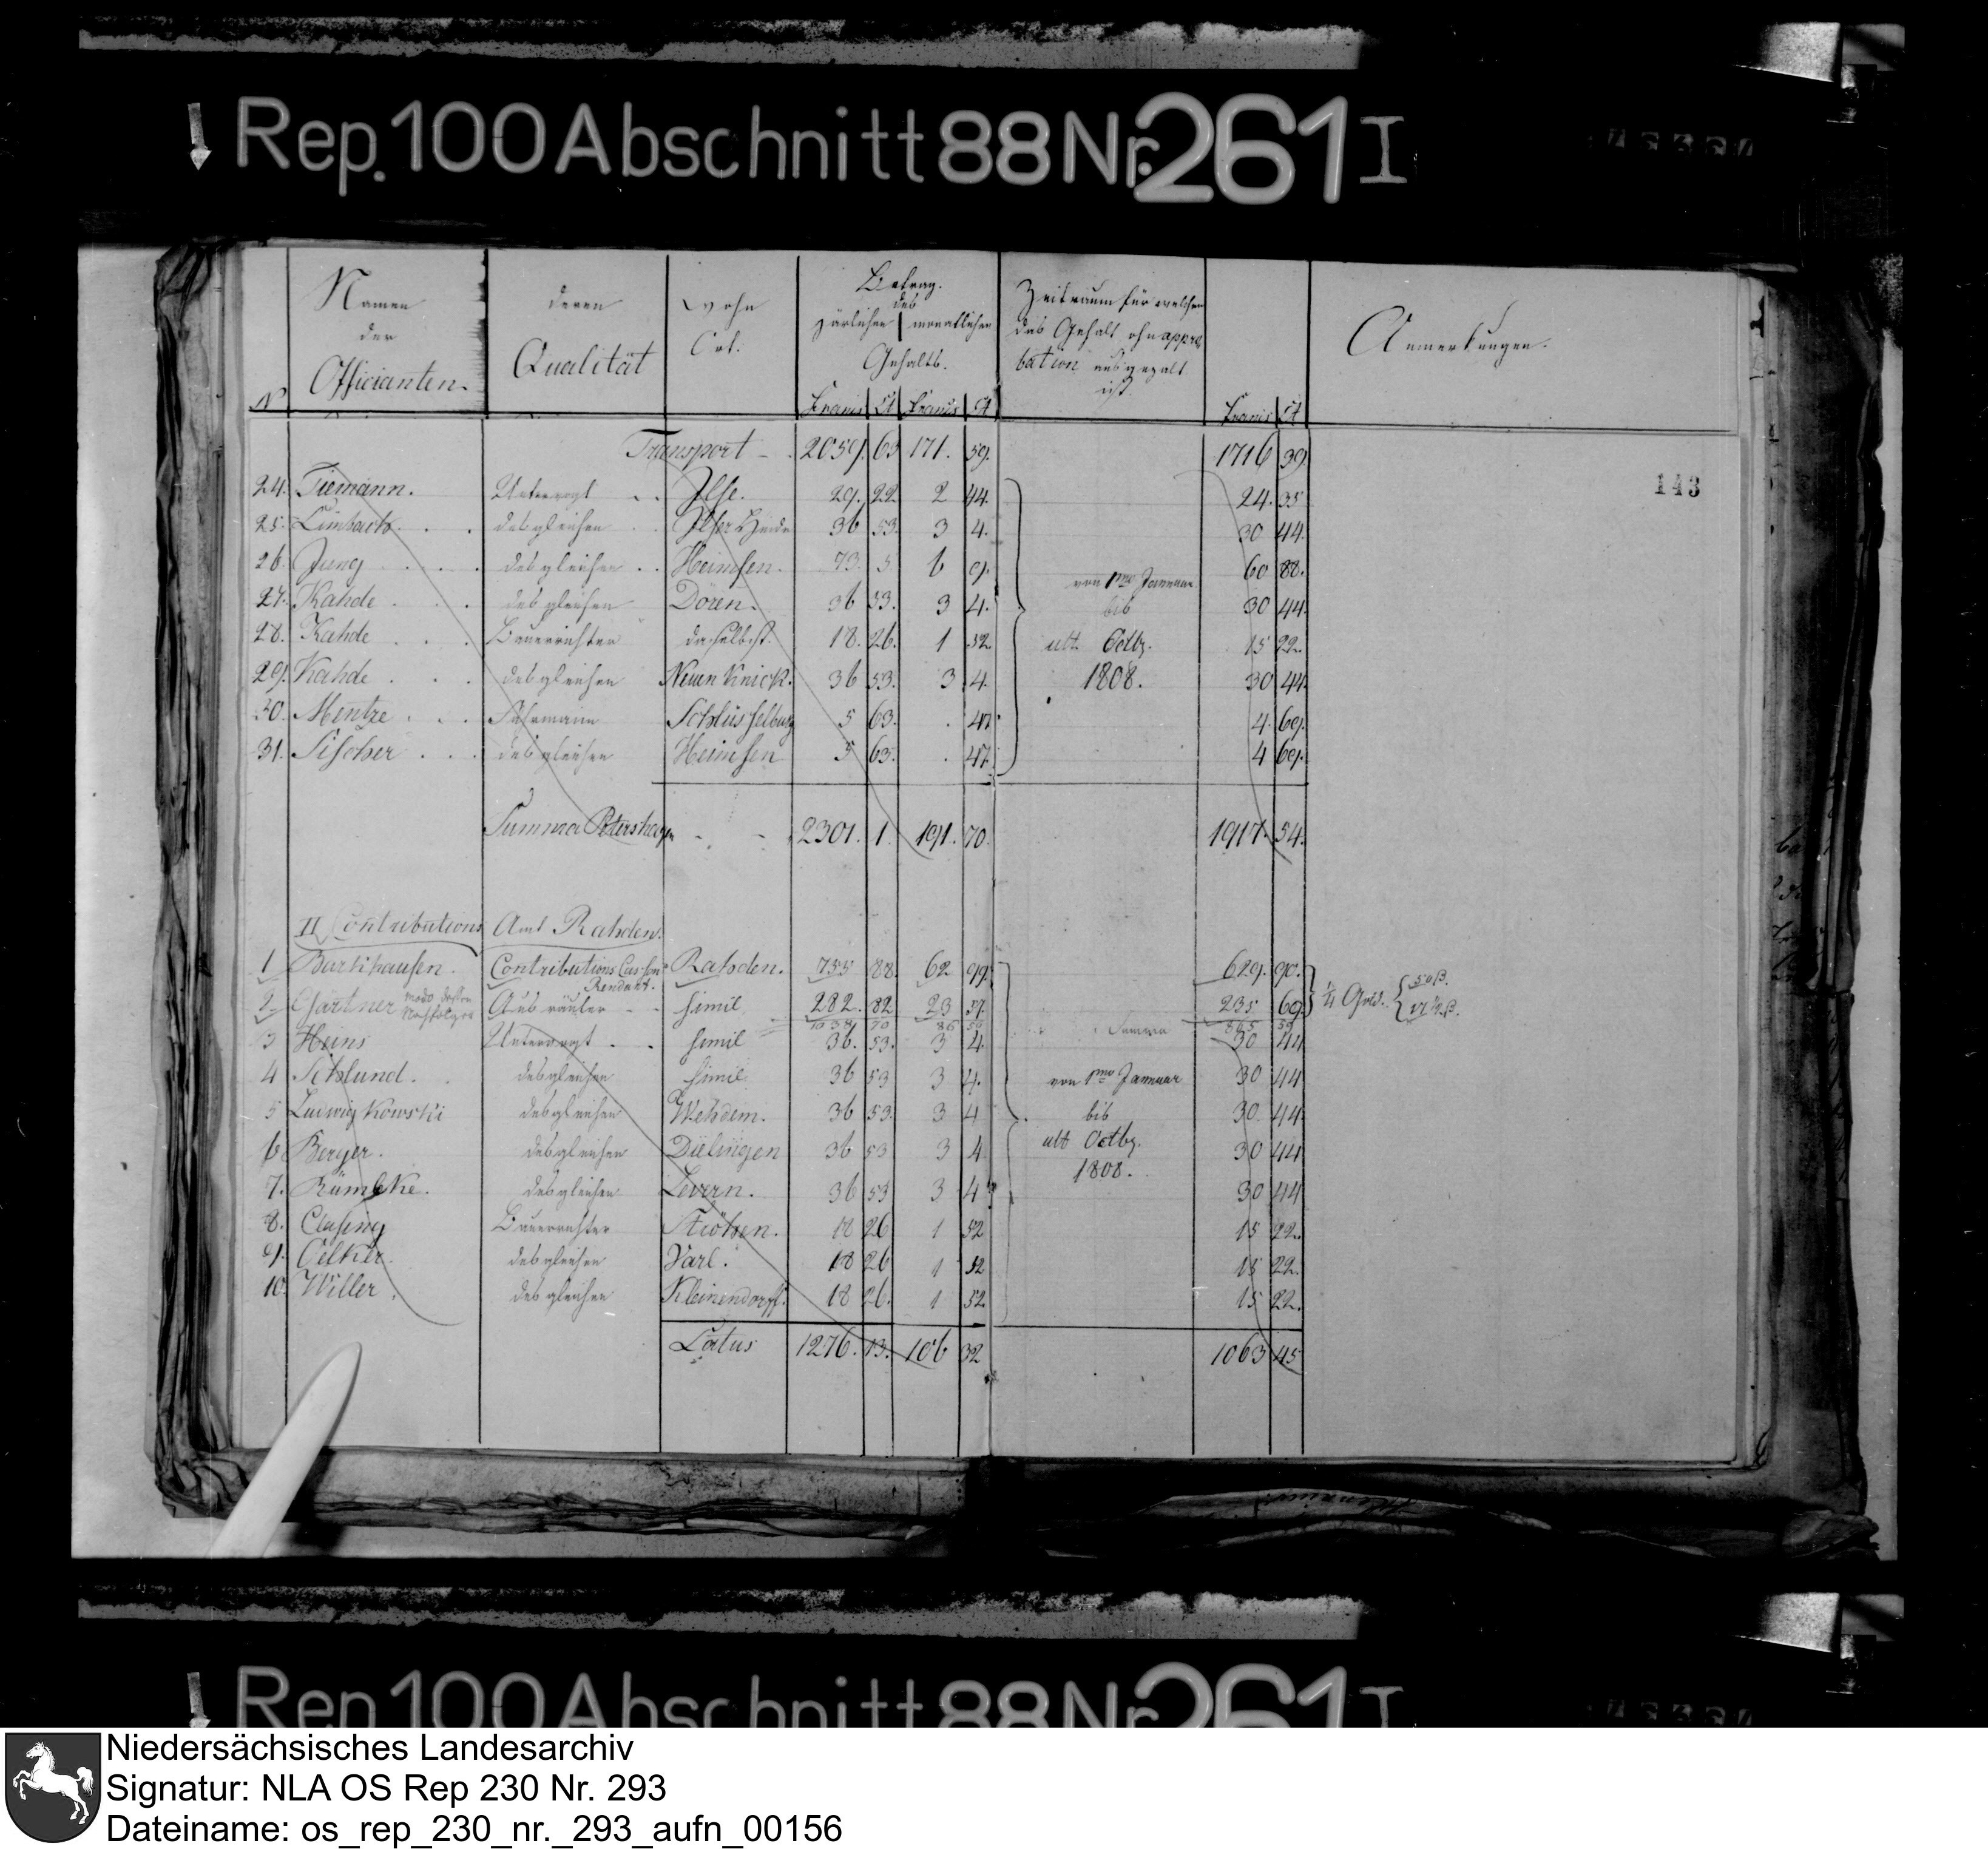 Rep. 100 Abschnitt 88 Nr. 261 I
No Namen der Officianten. deren Qualität Wohn Ort. Betrag des järlichen monatlichen Gehalts. Francs Ct Francs Ct Zeitraum für welchen das Gehalt ohn approbation ausgezalt ist. Francs Ct Anmerkungen.
143
Transport - 2059. 63 171. 59. 1716 39
24. Tiemann. Untervogt Ilse. 29. 22 2 44. 24. 35
25. Limbach desgleichen Ilser Heide 36 53. 3 4. 30 44.
26. Jung desgleichen Heimsen. 73. 5 6 9. 60 88.
27. Kahde desgleichen Dören. 36 53. 3 4. 30 44.
28. Kahde Bauerrichter daselbst. 18. 26. 1 52 15 22.
29. Kahde desgleichen Neuen Knick. 36 53. 3 4. 30 44.
30. Mentze Fährmann Schlüsselburg 5 63. . 47. 4. 69.
31. Fischer desgleichen Heimsen 5 63. . 47. 4 69.
von 1mo Januar
bis
ult Octbr.
1808.
Summa Petershagen - - 2301. 1. 191. 70. 1917. 54.
II Contributions Amt Rahden.
1 Barkhausen. Contributions Cassen Rendant. Rahden. 755 88. 62 99. 629. 90.
2. Gärtner modo dessen Nachfolger Ausreuter simil 282. 82. 23 57. 235 69.
1038 70 86 56 Summa 865 59
¼ Gold.
3 Heins Untervogt simil 36. 53. 3 4. 30 44
4 Schlund. desgleichen simil 36 53 3 4. 30 44
5 Ludwig Kowski desgleichen Wehdem. 36 53. 3 4 30. 44.
6 Berger. desgleichen Dielingen 36 53 3 4 30 44
7. Rümbke. desgleichen Levern. 36 53 3 4 30 44
8. Clasing Bauerrichter Ströhen. 18 26 1 52 15 22.
9. Oelker. desgleichen Varl. 18 26 1 52 15 22.
10. Willer. desgleichen Kleinendorff. 18 26. 1 52. 15 22.
von 1mo Januar
bis
ult Octbr.
1808.
Latus 1276. 13. 106 32 1063 45
Rep. 100 Abschnitt 88 Nr. 261 I
Niedersächsisches Landesarchiv
Signatur: NLA OS Rep 230 Nr. 293
Dateiname: os_rep_230_nr._293_aufn_00156